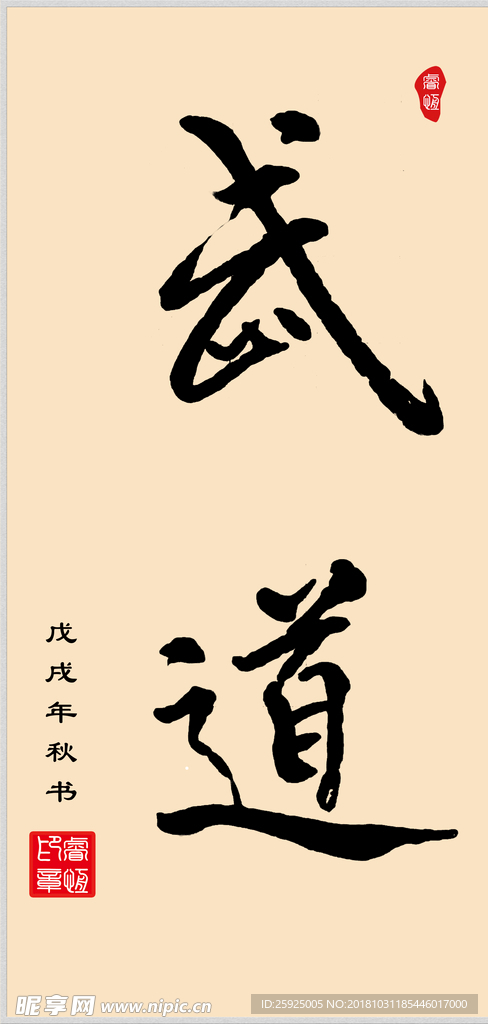 武道
睿恆
戊戌年秋书
睿恆印章
昵享网 www.nipic.cn
ID:25925005 NO:20181031185446017000